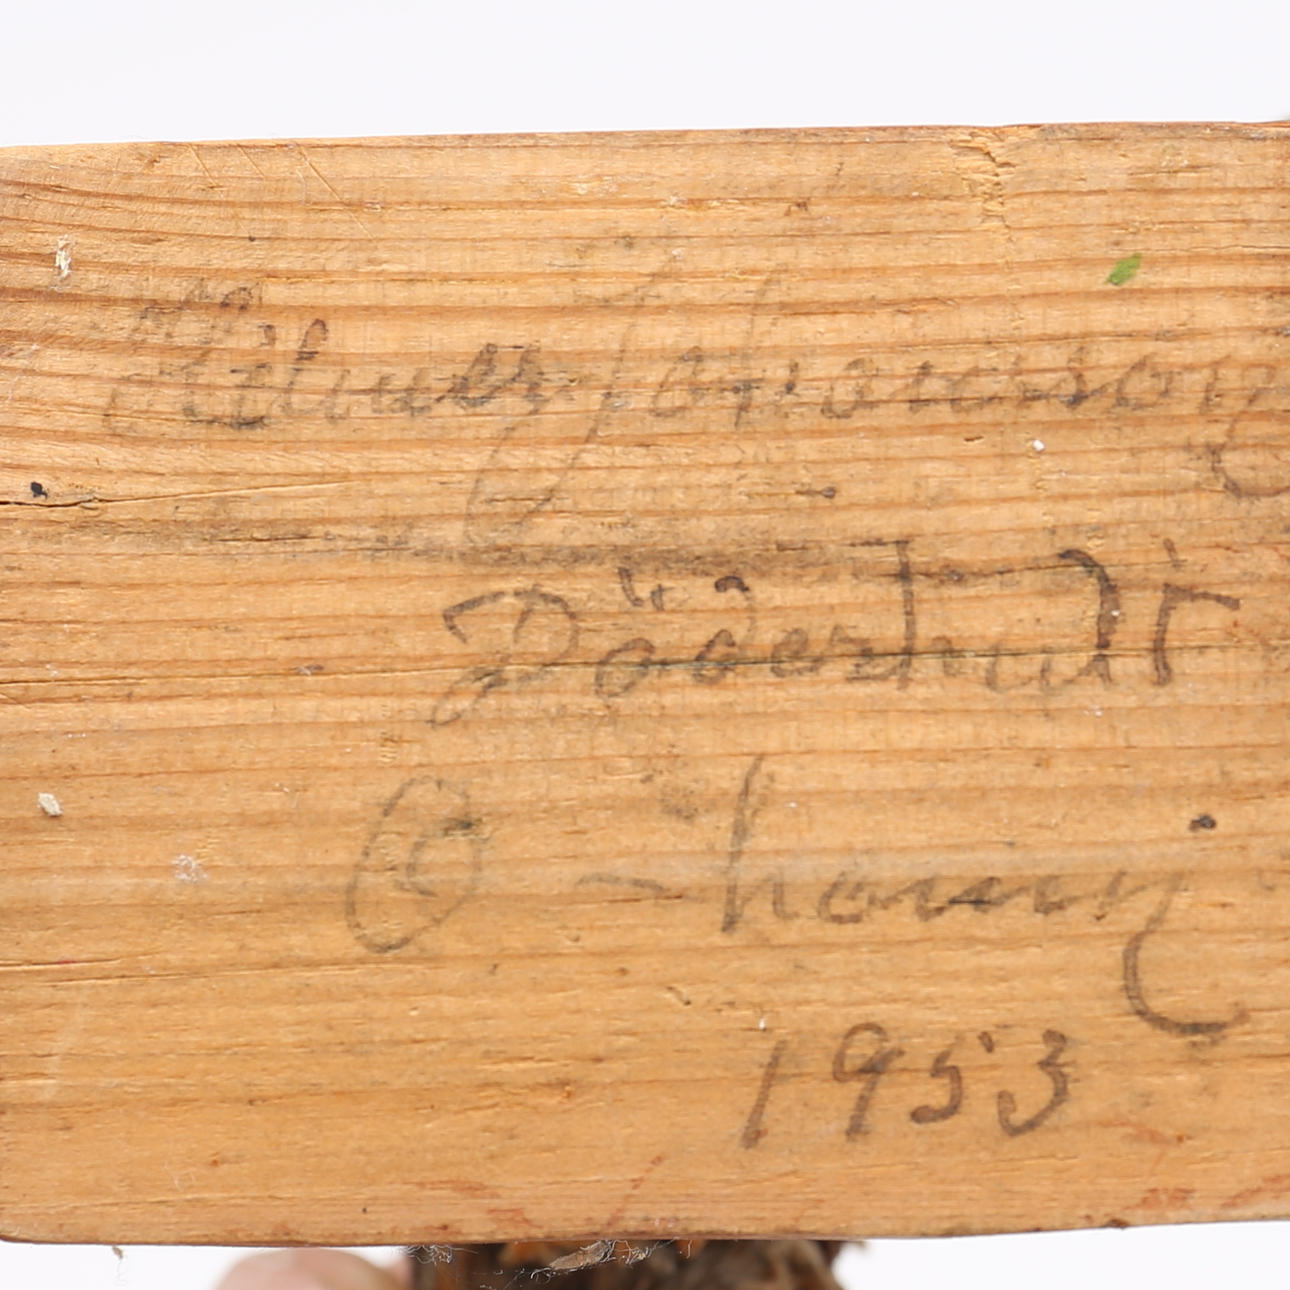 Hilmer Johansson
Döderhult
O-hamn
1953